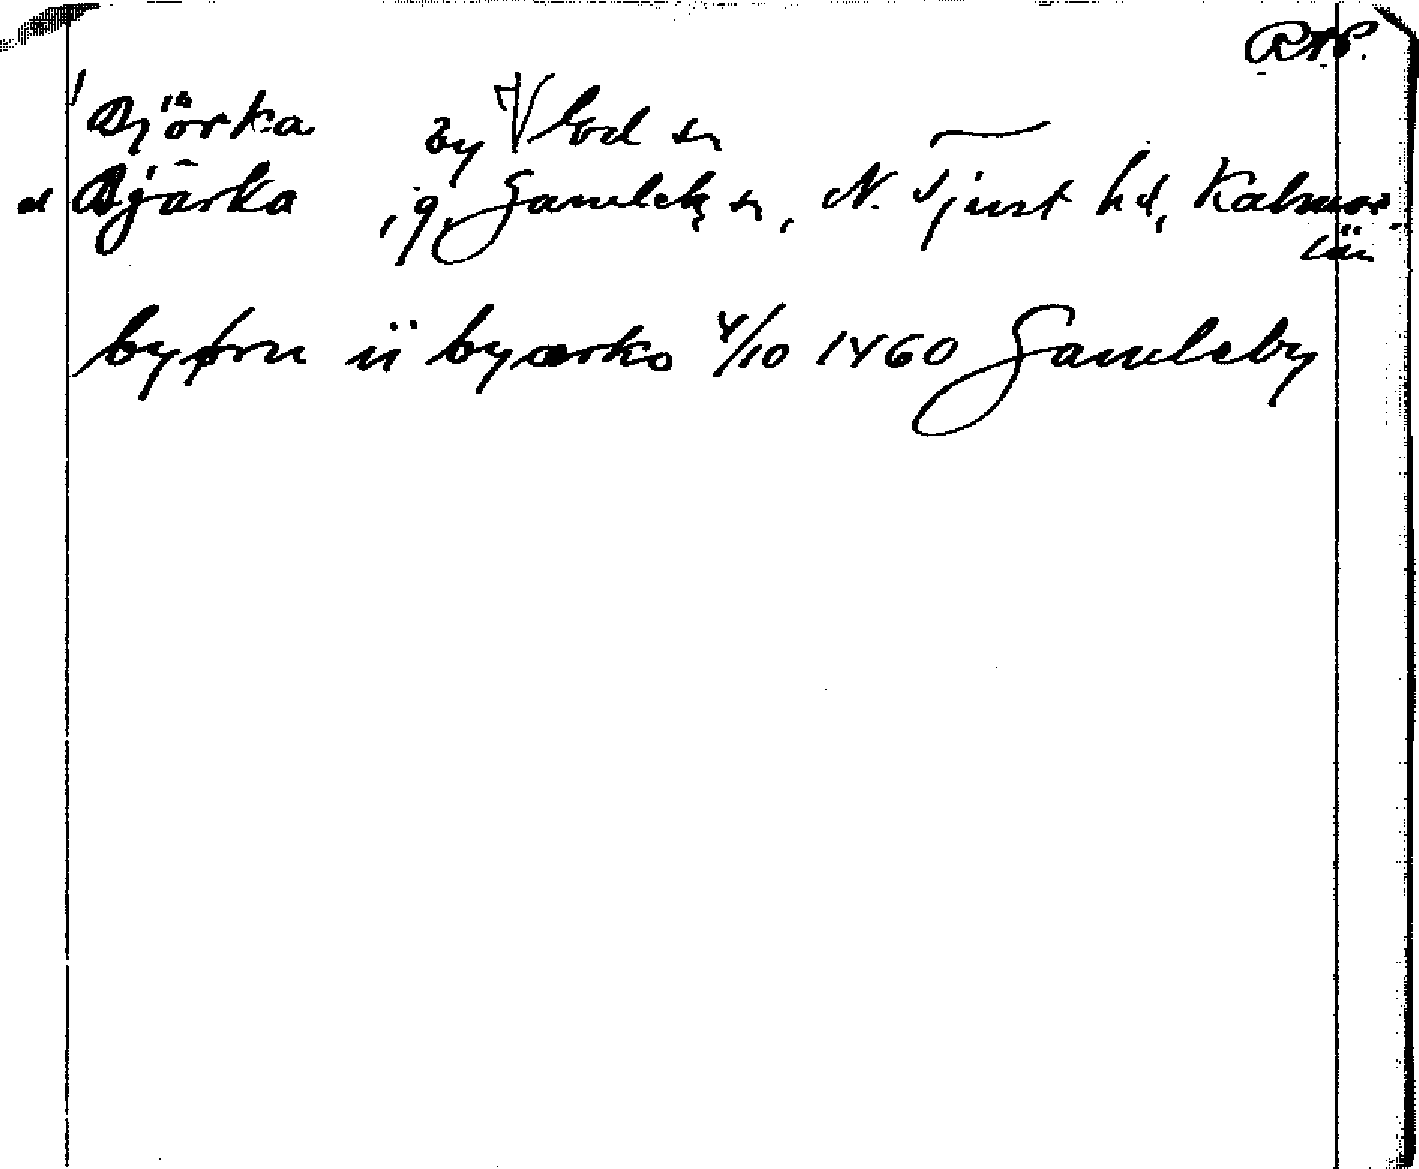 RAP.
Björka by Lod sn
el Bjärka, g, Gamleby sn, N. Tjust hd, Kalmar
län
byørn ii byærko 4/10 1460 Gamleby